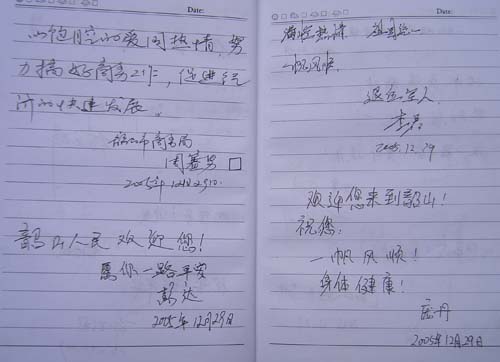 Date:
以饱满的爱国热情,努
力搞好商务工作,促进经
济的快速发展。
市商务局
2005年12月29日
韶山人民欢迎您!
愿你一路平安
彭达
2005年12月29日
Date:
满腔热情 祖国统一
一帆风顺
退伍军人
2005.12.29
欢迎您来到韶山!
祝您:
一帆风顺!
身体健康!
丹
2005年12月29日